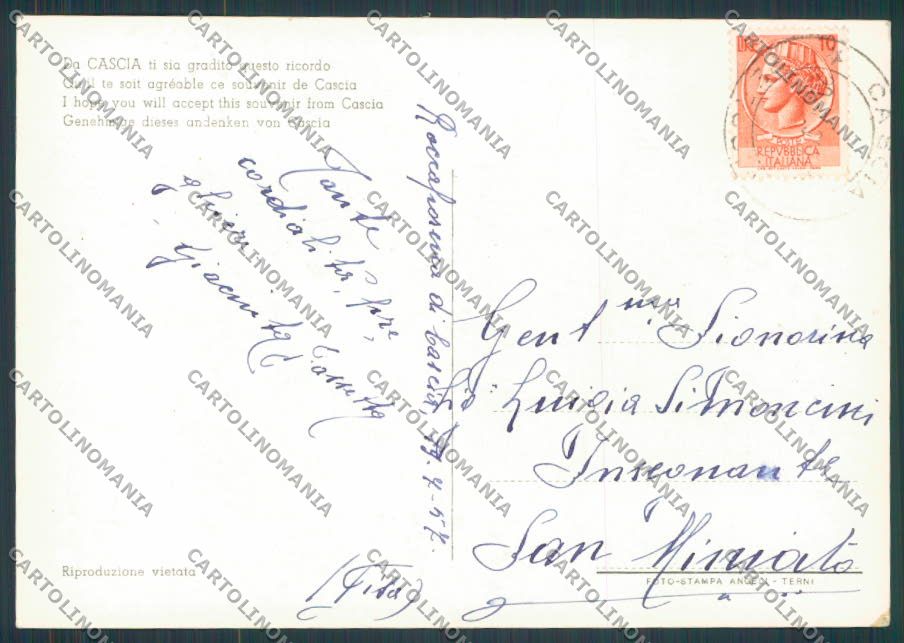 Da CASCIA ti sia gradito questo ricordo
Qu'il te soit agréable ce souvenir de Cascia
I hope you will accept this souvenir from Cascia
Genehmige dieses andenken von Cascia
Tante
cordialità, pre
ghiere
Giacinta Cossetta
Roccaporena di Cascia, 19-7-57.
LIRE 10
POSTE
REPVBBLICA
ITALIANA
CASCIA
Gent ma Signorina
Luigia Simoncini
Insegnante
San Miniato
(Pisa)
Riproduzione vietata
FOTO-STAMPA ANGELI - TERNI
CARTOLINOMANIA